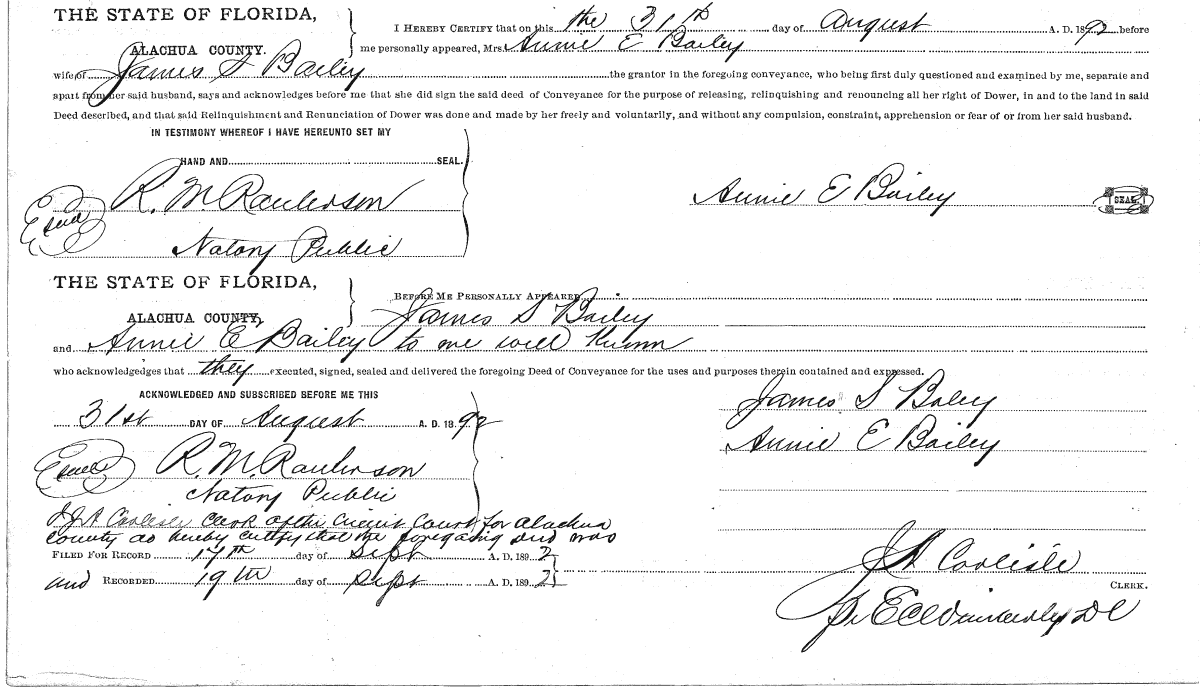 THE STATE OF FLORIDA,
ALACHUA COUNTY.
I HEREBY CERTIFY that on this the 31th day of August A. D. 1892 before
me personally appeared, Mrs. Annie E Bailey
wife of James S Bailey the grantor in the foregoing conveyance, who being first duly questioned and examined by me, separate and
apart from her said husband, says and acknowledges before me that she did sign the said deed of Conveyance for the purpose of releasing, relinquishing and renouncing all her right of Dower, in and to the land in said
Deed described, and that said Relinquishment and Renunciation of Dower was done and made by her freely and voluntarily, and without any compulsion, constraint, apprehension or fear of or from her said husband.
IN TESTIMONY WHEREOF I HAVE HEREUNTO SET MY
HAND AND SEAL.
R. M Raulerson
Seal
Notary Public
Annie E Bailey SEAL
THE STATE OF FLORIDA,
ALACHUA COUNTY,
BEFORE ME PERSONALLY APPEARED
James S Bailey
and Annie E Bailey to me well Known
who acknowledgedges that they executed, signed, sealed and delivered the foregoing Deed of Conveyance for the uses and purposes therein contained and expressed.
ACKNOWLEDGED AND SUBSCRIBED BEFORE ME THIS
31st DAY OF August A. D. 1892
Seal R. M. Raulerson
Notary Public
James S Baley
Annie E Bailey
I J A Carlisle Clerk of the Circuit Court for Alachua
County do hereby certify that the foregoing deed was
FILED FOR RECORD 17th day of Sept A. D. 1892
and RECORDED 19th day of Sept A. D. 1892
J A Carlisle
CLERK.
DC